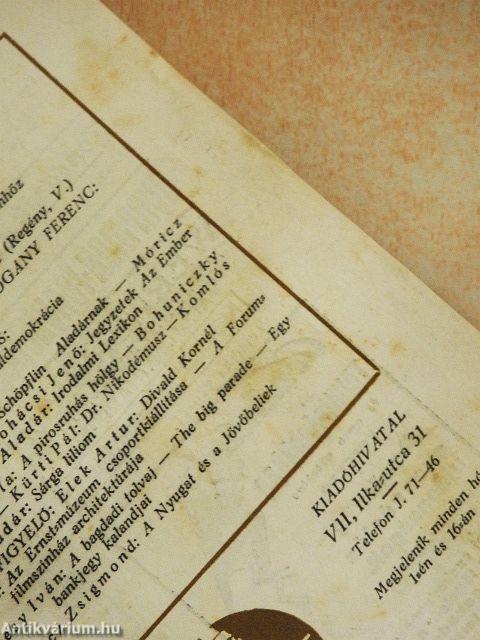 (Regény, V.)
OGÁNY FERENC:
ldemokrácia
S:
Schöpflin Aladárnak — Móricz
ohácsi Jenő: Jegyzetek Az Ember
Aladár: Irodalmi Lexikon
A pirosruhás hölgy — Bohuniczky
— Kürti Pál: Dr. Nikodémusz — Komlós
dár: Sárga liliom
FIGYELŐ: Elek Artur: Divald Kornél
Az Ernst-múzeum csoportkiállítása — A Forum-
filmszínház architektúrája
Iván: A bagdadi tolvaj — The big parade — Egy
bankjegy kalandjai
Zsigmond: A Nyugat és a Jövőbeliek
KIADÓHIVATAL
VII, Ilka-utca 31
Telefon J. 71—46
Megjelenik minden hó
1-én és 16-án
Antikvárium.hu